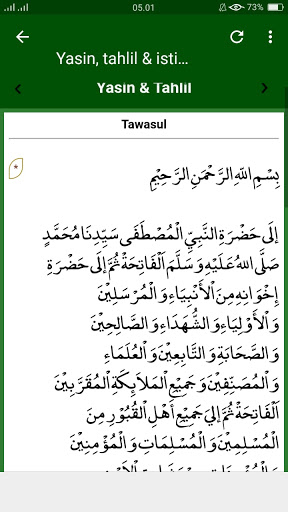 05.01
73%
Yasin, tahlil & isti...
Yasin & Tahlil
Tawasul
بِسْمِ اللّٰهِ الرَّحْمٰنِ الرَّحِيْمِ
*
إِلَى حَضْرَةِ النَّبِيِّ الْمُصْطَفَى سَيِّدِنَا مُحَمَّدٍ
صَلَّى اللهُ عَلَيْهِ وَسَلَّمَ اَلْفَاتِحَةْ ثُمَّ إِلَى حَضْرَةِ
إِخْوَانِهِ مِنَ الْأَنْبِيَاءِ وَالْمُرْسَلِيْنَ
وَالْأَوْلِيَاءِ وَالشُّهَدَاءِ وَالصَّالِحِيْنَ
وَالصَّحَابَةِ وَالتَّابِعِيْنَ وَالْعُلَمَاءِ
وَالْمُصَنِّفِيْنَ وَجَمِيْعِ الْمَلَائِكَةِ الْمُقَرَّبِيْنَ
اَلْفَاتِحَةْ ثُمَّ إِليَ جَمِيْعِ أَهْلِ الْقُبُوْرِ مِنَ
الْمُسْلِمِيْنَ وَالْمُسْلِمَاتِ وَالْمُؤْمِنِيْنَ